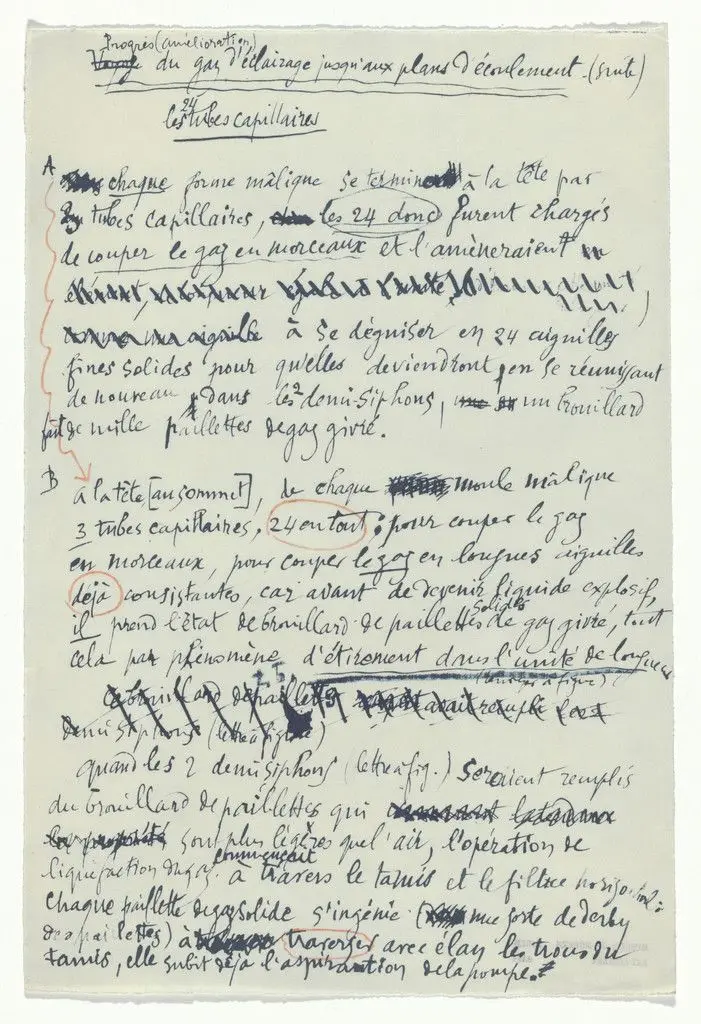 Progrès (amélioration)
Voyage du gaz d'éclairage jusqu'aux plans d'écoulement (suite)
les 24 tubes capillaires
A
chaque forme mâlique se termine à la tête par
3 tubes capillaires, les 24 donc furent chargés
de couper le gaz en morceaux et l'amèneraient
comme une aiguille à se déguiser en 24 aiguilles
fines solides pour qu'elles deviendront, en se réunissant
de nouveau, dans les 2 demi-siphons, un brouillard
fait de mille paillettes de gaz givré.
B
à la tête [au sommet], de chaque moule mâlique
3 tubes capillaires, 24 en tout; pour couper le gaz
en morceaux, pour couper le gaz en longues aiguilles
déjà consistantes, car avant de devenir liquide explosif,
il prend l'état de brouillard de paillettes solides de gaz givré, tout
cela par phénomène d'étirement dans l'unité de longueur
(lettre à fig.)
ce brouillard de paillettes avait rempli les 2
demi siphons (lettre à fig.)
quand les 2 demi siphons (lettre à fig.) seraient remplis
du brouillard de paillettes qui
sont plus légères que l'air, l'opération de
liquéfaction du gaz commençait à travers le tamis et le filtre horizontal:
chaque paillette de gaz solide s'ingénie (une sorte de derby
de paillettes) à traverser avec élan les trous du
tamis, elle subit déjà l'aspiration de la pompe.